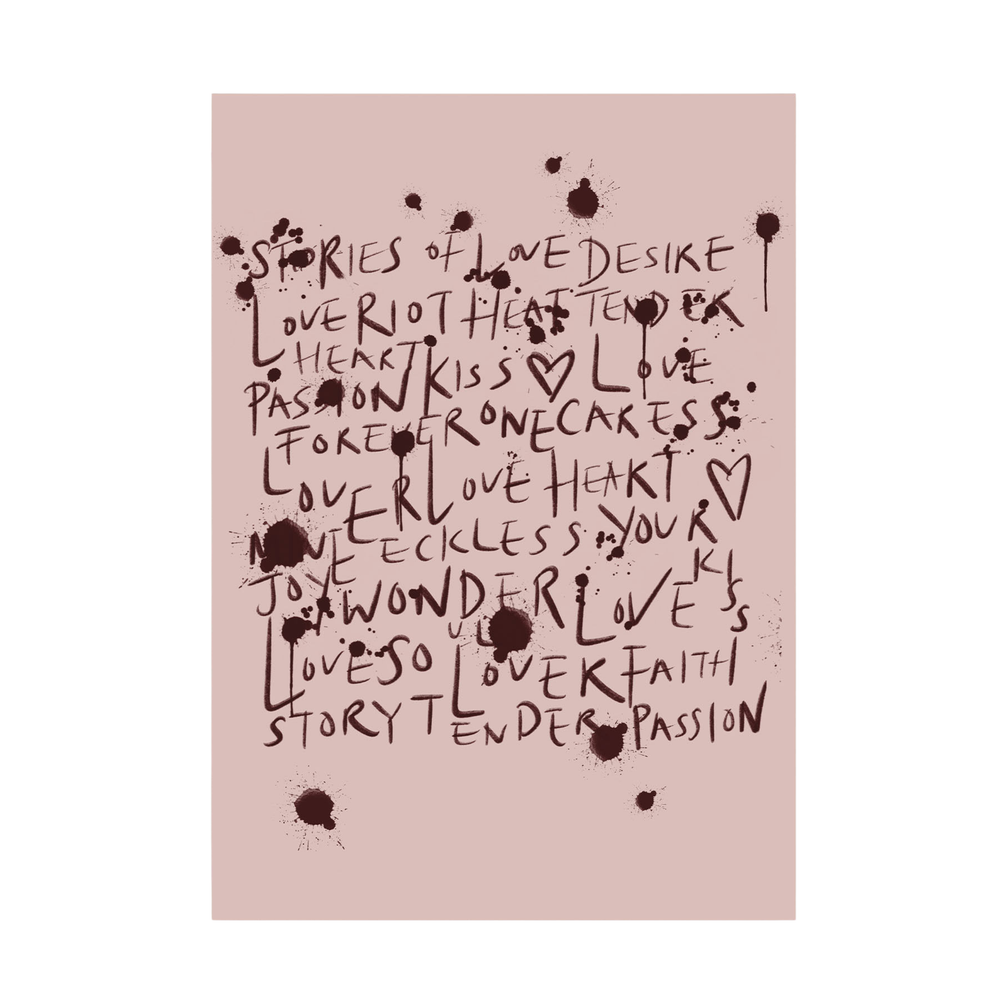 STORIES OF LOVE DESIRE
LOVE RIOT HEAT TENDER
HEART KISS LOVE
PASSION
FOREVER ONE CARESS
LOVER LOVE HEART
LOVE RECKLESS YOUR
JOY WONDER LOVE KISS
LOVE SOUL LOVER FAITH
STORY TENDER PASSION